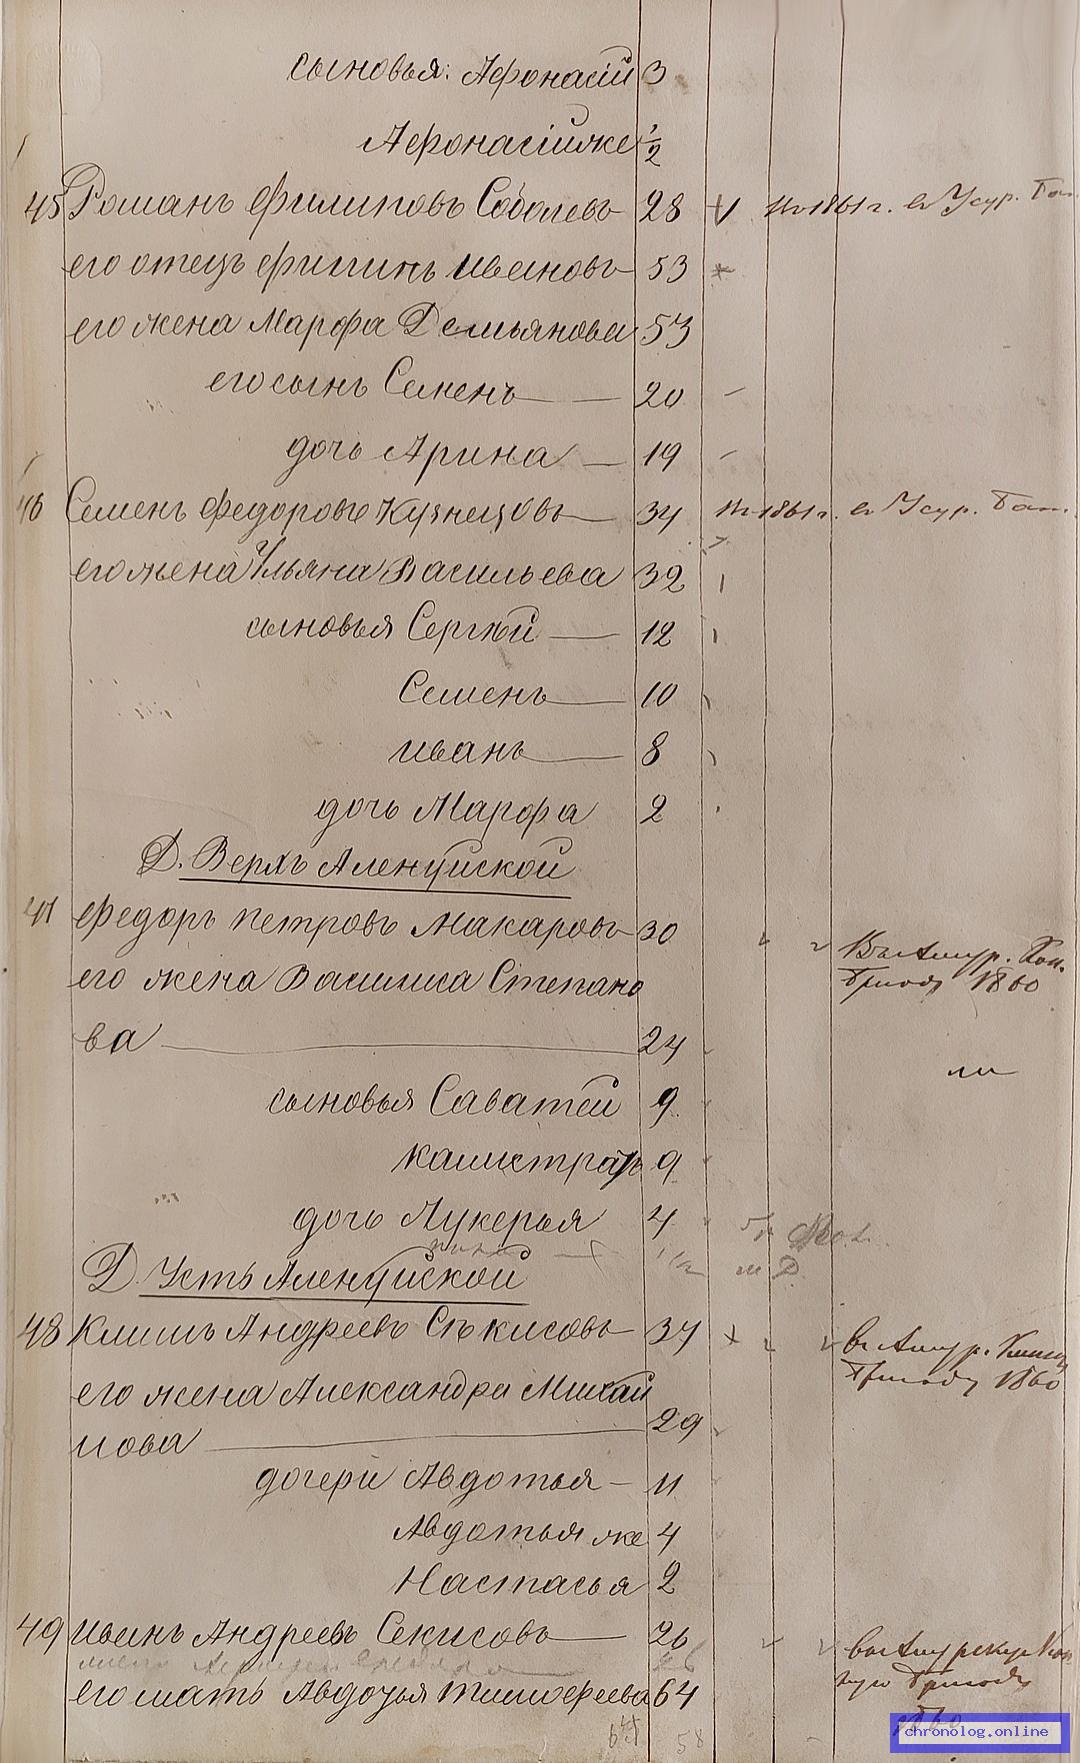 сыновья: Афонасій 3
Афонасій же 1/2
45 Романъ Филиповъ Соболевъ 28 по 1861 г. въ Усур. Бат.
его отецъ Филипъ Ивановъ 53
его жена Марфа Демьянова 53
его сынъ Семенъ 20
дочь Арина 19
46 Семенъ Федоровъ Кузнецовъ 34 по 1861 г. въ Усур. Бат.
его жена Ульяна Васильева 32
сыновья Сергѣй 12
Семенъ 10
Иванъ 8
дочь Марфа 2
Д. Верхъ Аленуйской
47 Федоръ Петровъ Макаровъ 30 Въ Амур. Кон.
его жена Василиса Степано Бригаду 1860
ва 24
сыновья Саватей 9
Калистратъ 9
дочь Лукерья 4
Д. Усть Аленуйской
48 Климъ Андреевъ Сѣкисовъ 34 въ Амур. Конну
его жена Александра Михай Бригаду 1860
лова 29
дочери Авдотья 11
Авдотья же 4
Настасья 2
49 Иванъ Андреевъ Секисовъ 26 въ Амурскую Кон
его мать Авдотья Тимофеева 64 ную Бригаду
1860
chronolog.online